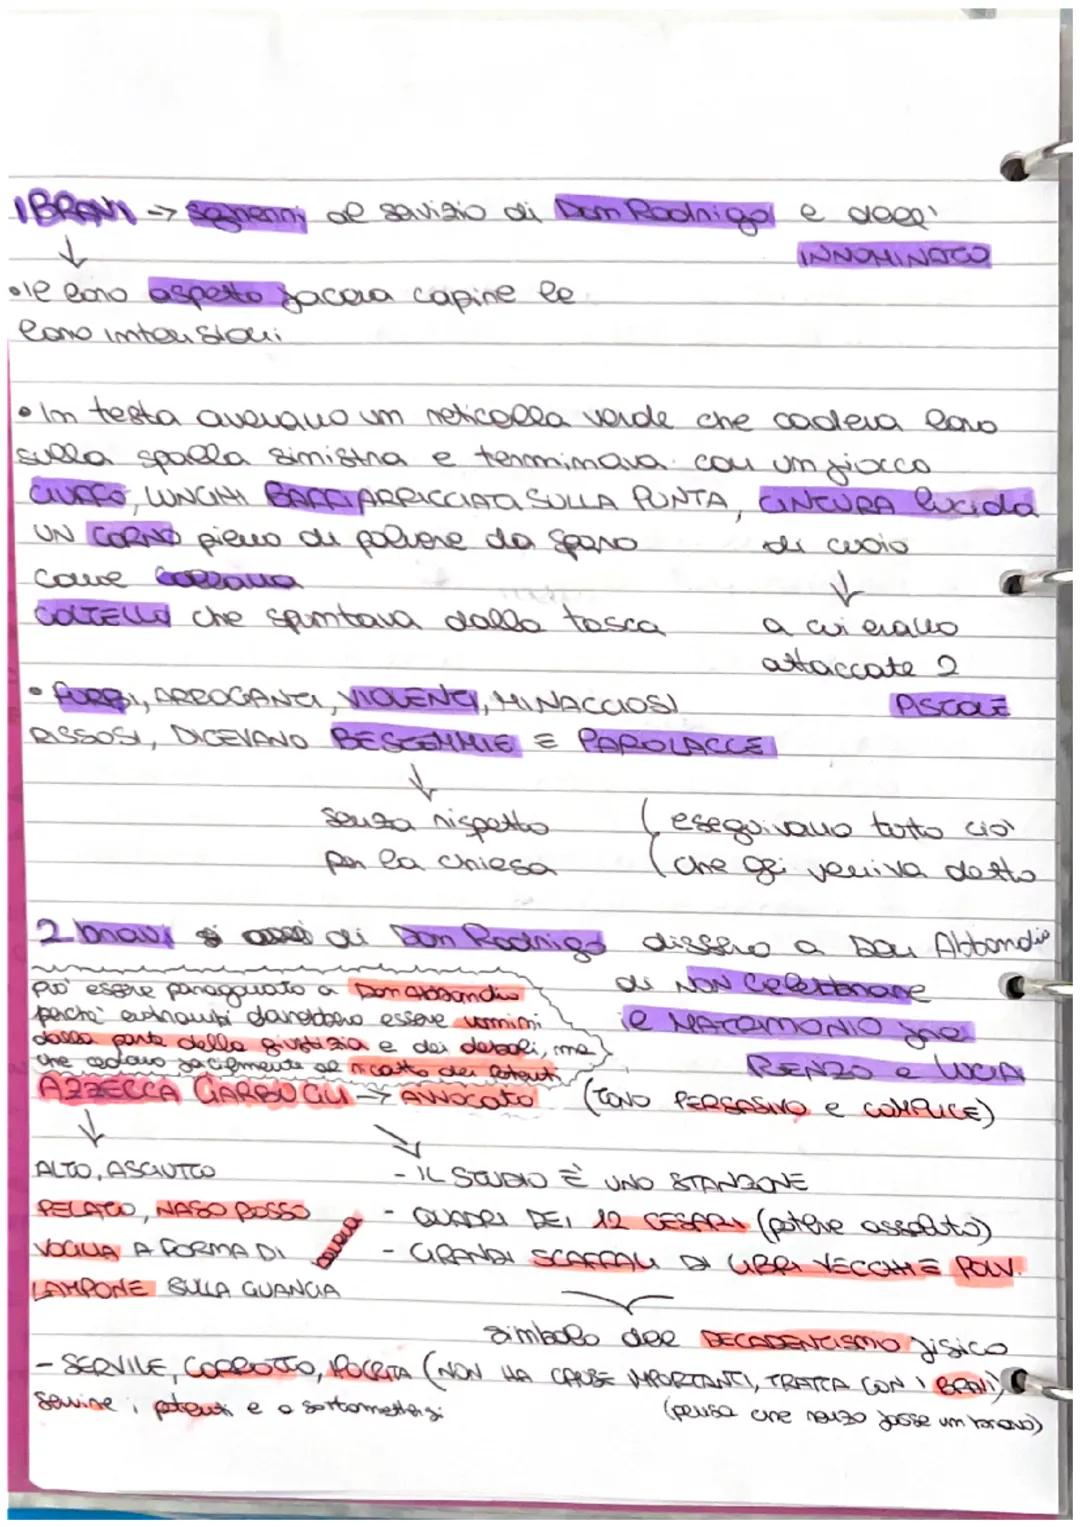 I BRAVI → sgherri al servizio di Don Rodrigo e dell'
INNOMINATO
↓
• le loro aspetto faceva capire le
loro intensioni
• In testa avevano un reticella verde che cadeva loro
sulla spalla sinistra e terminava con un fiocco
CIUFFO, LUNGHI BAFFI ARRICCIATI SULLA PUNTA, CINTURA lucida
UN CORNO pieno di polvere da sparo di cuoio
come collana ↓
COLTELLO che spuntava dalla tasca a cui erano
attaccate 2
• FURBI, ARROGANTI, VIOLENTI, MINACCIOSI PISTOLE
RISSOSI, DICEVANO BESTEMMIE E PAROLACCE
↓
senza rispetto ( eseguivano tutto ciò
per la chiesa ( che gli veniva detto
2 bravi di Don Rodrigo dissero a Don Abbondio
di NON Celebrare
il MATRIMONIO fra
RENZO e LUCIA
può essere paragonato a Don Abbondio
perché entrambi darebbero essere uomini
dalla parte della giustizia e dei deboli, ma
che cedono facilmente al ricatto dei Potenti
AZZECCA GARBUGLI → AVVOCATO (TONO PERSASIVO e COMPLICE)
↓
ALTO, ASCIUTTO - IL STUDIO È UNO STANZONE
PELATO, NASO ROSSO - QUADRI DEI 12 CESARI (potere assoluto)
VOGLIA A FORMA DI - GRANDI SCAFFALI DI LIBRI VECCHI E POLV.
LAMPONE SULLA GUANCIA
simbolo del DECADENTISMO fisico
- SERVILE, CORROTTO, IPOCRITA (NON HA CAUSE IMPORTANTI, TRATTA CON I BRAVI)
servire i potenti e a sottomettersi (pensa che renzo fosse un bravo)